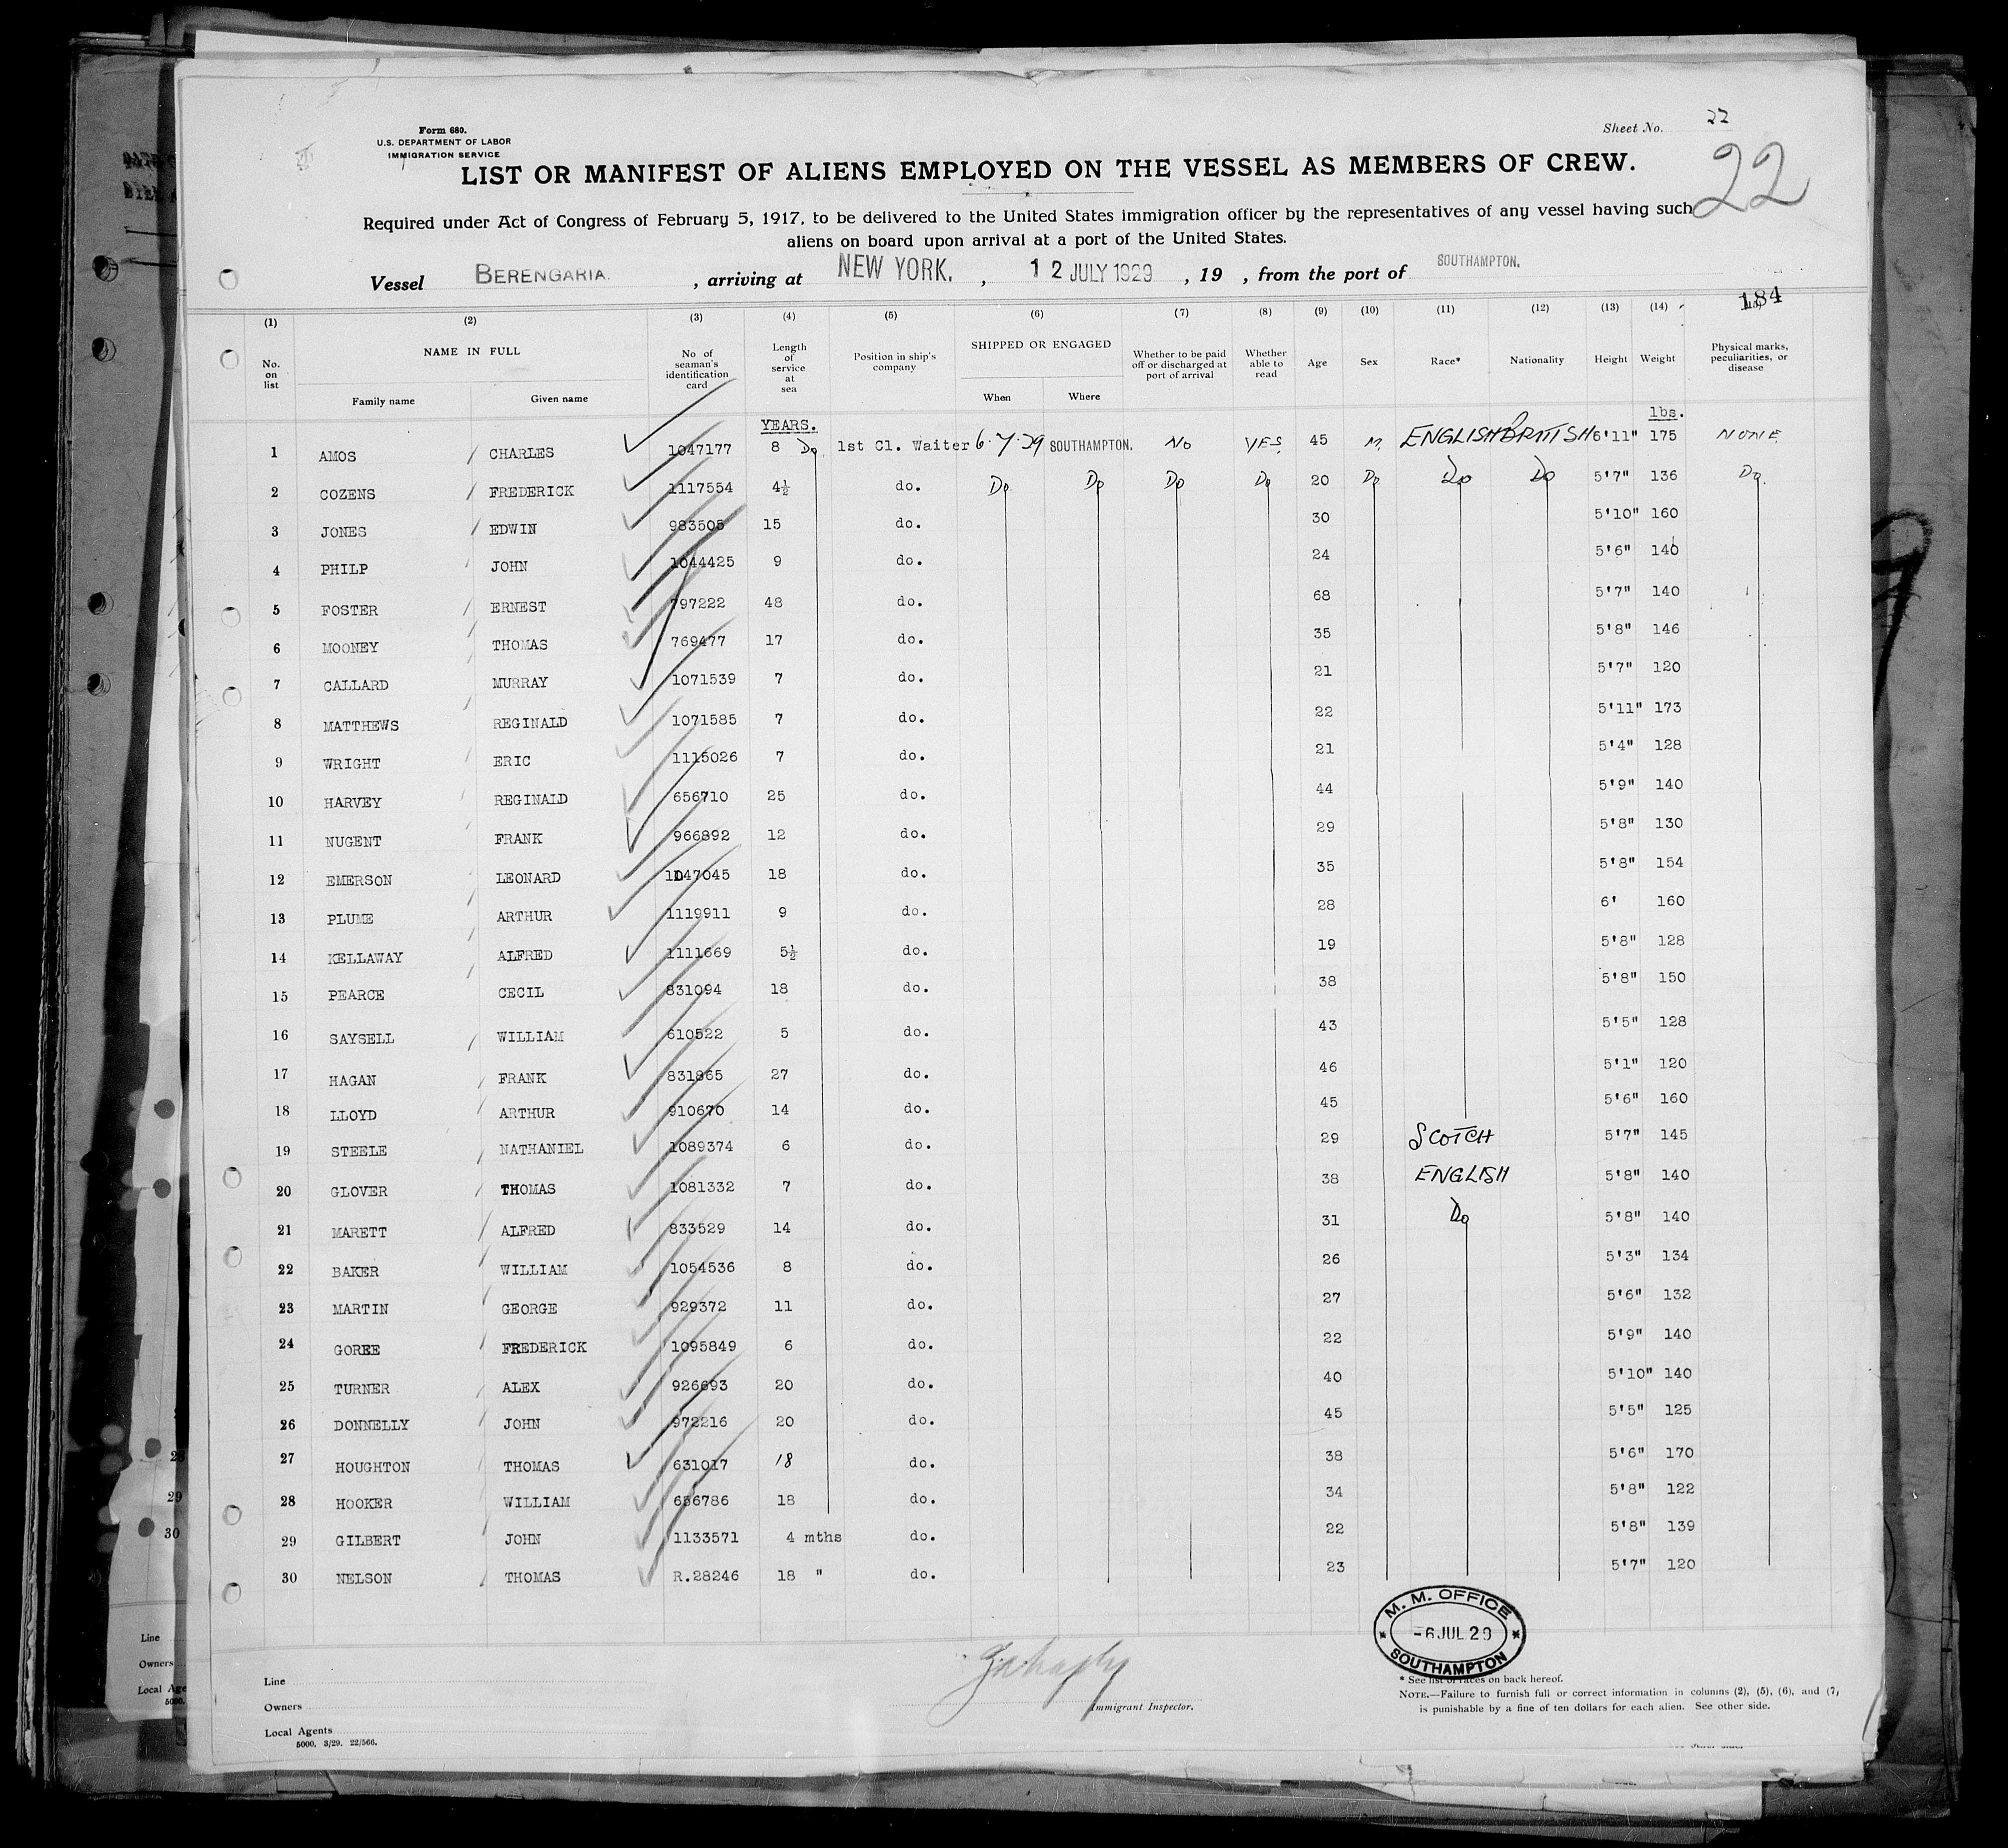 Form 680.
U.S. DEPARTMENT OF LABOR
IMMIGRATION SERVICE
Sheet No. 22
22
LIST OR MANIFEST OF ALIENS EMPLOYED ON THE VESSEL AS MEMBERS OF CREW.
Required under Act of Congress of February 5, 1917, to be delivered to the United States immigration officer by the representatives of any vessel having such
aliens on board upon arrival at a port of the United States.
Vessel BERENGARIA. , arriving at NEW YORK. , 12 JULY 1929 , 19 , from the port of SOUTHAMPTON.
184
(1) (2) (3) (4) (5) (6) (7) (8) (9) (10) (11) (12) (13) (14)
No. on list NAME IN FULL Family name Given name No of seaman's identification card Length of service at sea Position in ship's company SHIPPED OR ENGAGED When Where Whether to be paid off or discharged at port of arrival Whether able to read Age Sex Race* Nationality Height Weight Physical marks, peculiarities, or disease
YEARS. lbs.
1 AMOS CHARLES 1047177 8 Do 1st Cl. Waiter 6.7.29 SOUTHAMPTON. NO YES 45 M. ENGLISH BRITISH 6'11" 175 NONE
2 COZENS FREDERICK 1117554 4½ do. Do Do Do Do 20 Do Do Do 5'7" 136 Do.
3 JONES EDWIN 983505 15 do. 30 5'10" 160
4 PHILP JOHN 1044425 9 do. 24 5'6" 140
5 FOSTER ERNEST 797222 48 do. 68 5'7" 140
6 MOONEY THOMAS 769477 17 do. 35 5'8" 146
7 CALLARD MURRAY 1071539 7 do. 21 5'7" 120
8 MATTHEWS REGINALD 1071585 7 do. 22 5'11" 173
9 WRIGHT ERIC 1115026 7 do. 21 5'4" 128
10 HARVEY REGINALD 656710 25 do. 44 5'9" 140
11 NUGENT FRANK 966892 12 do. 29 5'8" 130
12 EMERSON LEONARD 1047045 18 do. 35 5'8" 154
13 PLUME ARTHUR 1119911 9 do. 28 6' 160
14 KELLAWAY ALFRED 1111669 5½ do. 19 5'8" 128
15 PEARCE CECIL 831094 18 do. 38 5'8" 150
16 SAYSELL WILLIAM 610522 5 do. 43 5'5" 128
17 HAGAN FRANK 831865 27 do. 46 5'1" 120
18 LLOYD ARTHUR 910670 14 do. 45 5'6" 160
19 STEELE NATHANIEL 1089374 6 do. 29 SCOTCH 5'7" 145
20 GLOVER THOMAS 1081332 7 do. 38 ENGLISH 5'8" 140
21 MARETT ALFRED 833529 14 do. 31 Do 5'8" 140
22 BAKER WILLIAM 1054536 8 do. 26 5'3" 134
23 MARTIN GEORGE 929372 11 do. 27 5'6" 132
24 GOREE FREDERICK 1095849 6 do. 22 5'9" 140
25 TURNER ALEX 926693 20 do. 40 5'10" 140
26 DONNELLY JOHN 972216 20 do. 45 5'5" 125
27 HOUGHTON THOMAS 631017 18 do. 38 5'6" 170
28 HOOKER WILLIAM 656786 18 do. 34 5'8" 122
29 GILBERT JOHN 1133571 4 mths do. 22 5'8" 139
30 NELSON THOMAS R.28246 18 " do. 23 5'7" 120
M. M. OFFICE
-6 JUL 29
SOUTHAMPTON
Line
Owners
Local Agents
5000. 3/29. 22/566.
Immigrant Inspector.
* See list of races on back hereof.
NOTE.—Failure to furnish full or correct information in columns (2), (5), (6), and (7)
is punishable by a fine of ten dollars for each alien. See other side.
29
30
Line
Owners
Local Age
5000.